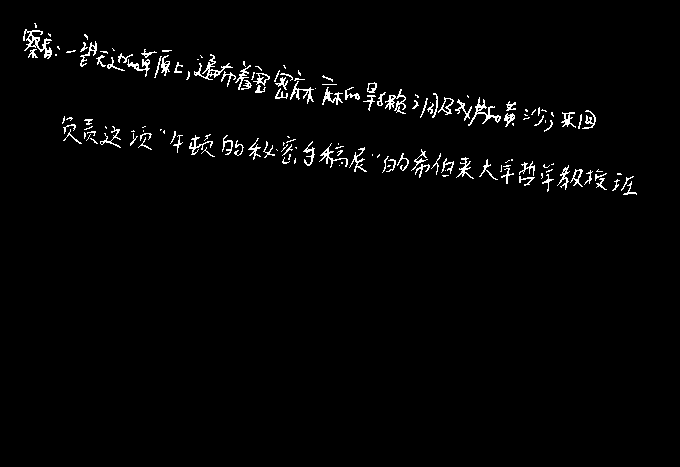 察看:一望无边的草原上,遍布着密密麻麻的旱獭洞及成片的黄沙,来回
负责这项“牛顿的秘密手稿展”的希伯来大学哲学教授班